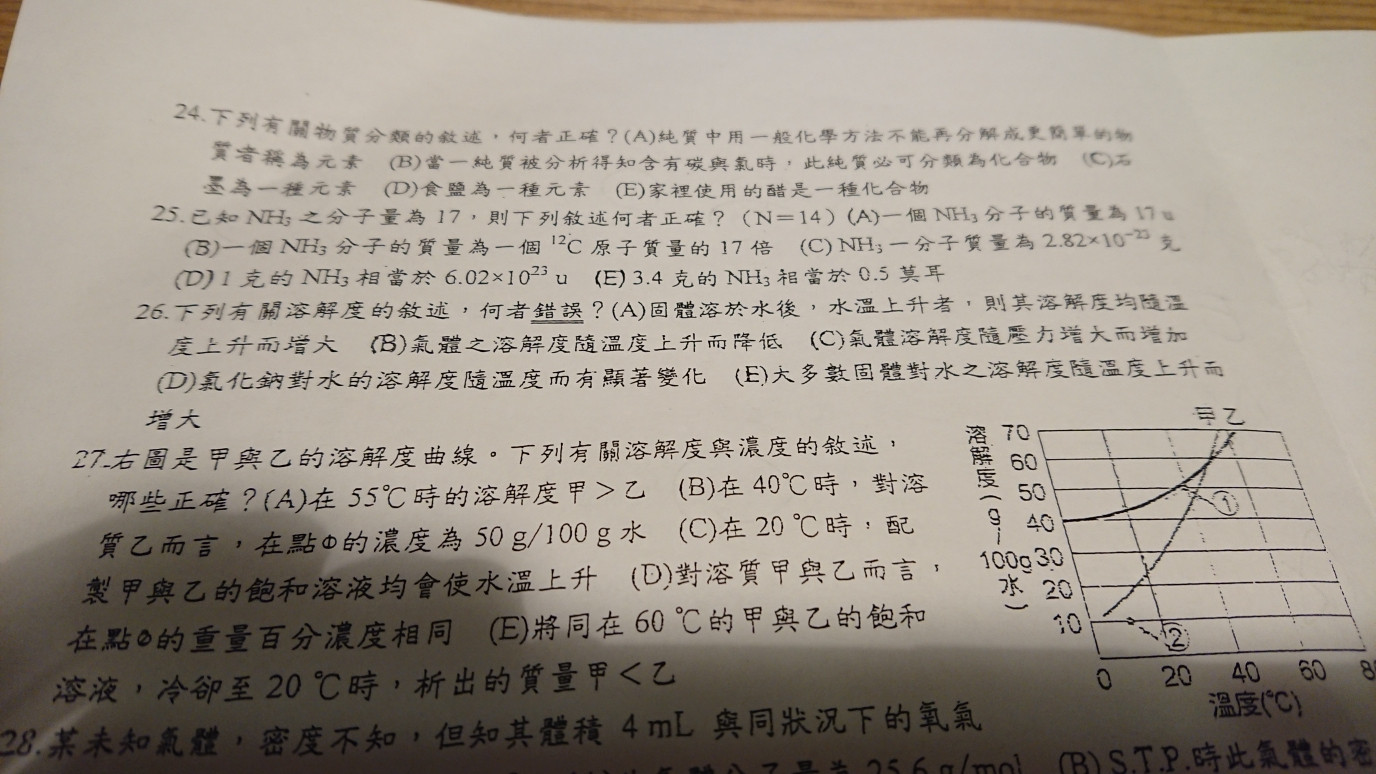 24.下列有關物質分類的敘述，何者正確？(A)純質中用一般化學方法不能再分解成更簡單的物
質者稱為元素 (B)當一純質被分析得知含有碳與氧時，此純質必可分類為化合物 (C)石
墨為一種元素 (D)食鹽為一種元素 (E)家裡使用的醋是一種化合物
25.已知 NH₃ 之分子量為 17，則下列敘述何者正確？（N＝14）(A)一個 NH₃ 分子的質量為 17 u
(B)一個 NH₃ 分子的質量為一個 ¹²C 原子質量的 17 倍 (C) NH₃ 一分子質量為 2.82×10⁻²³ 克
(D) 1 克的 NH₃ 相當於 6.02×10²³ u (E) 3.4 克的 NH₃ 相當於 0.5 莫耳
26.下列有關溶解度的敘述，何者錯誤？(A)固體溶於水後，水溫上升者，則其溶解度均隨溫
度上升而增大 (B)氣體之溶解度隨溫度上升而降低 (C)氣體溶解度隨壓力增大而增加
(D)氯化鈉對水的溶解度隨溫度而有顯著變化 (E)大多數固體對水之溶解度隨溫度上升而
增大
27.右圖是甲與乙的溶解度曲線。下列有關溶解度與濃度的敘述，
哪些正確？(A)在 55℃時的溶解度甲＞乙 (B)在 40℃時，對溶
質乙而言，在點①的濃度為 50 g/100 g 水 (C)在 20 ℃時，配
製甲與乙的飽和溶液均會使水溫上升 (D)對溶質甲與乙而言，
在點②的重量百分濃度相同 (E)將同在 60 ℃的甲與乙的飽和
溶液，冷卻至 20 ℃時，析出的質量甲＜乙
甲 乙
溶解度(g/100g水)
70
60
50
40
30
20
10
①
②
0 20 40 60 8
溫度(℃)
28.某未知氣體，密度不知，但知其體積 4 mL 與同狀況下的氧氣
25.6 g/mol (B) S.T.P.時此氣體的密